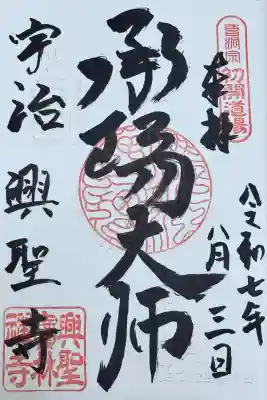 曹洞宗 初開道場
奉拝
令和七年
八月三日
承陽大師
宇治 興聖寺
興聖
寶林
禅寺